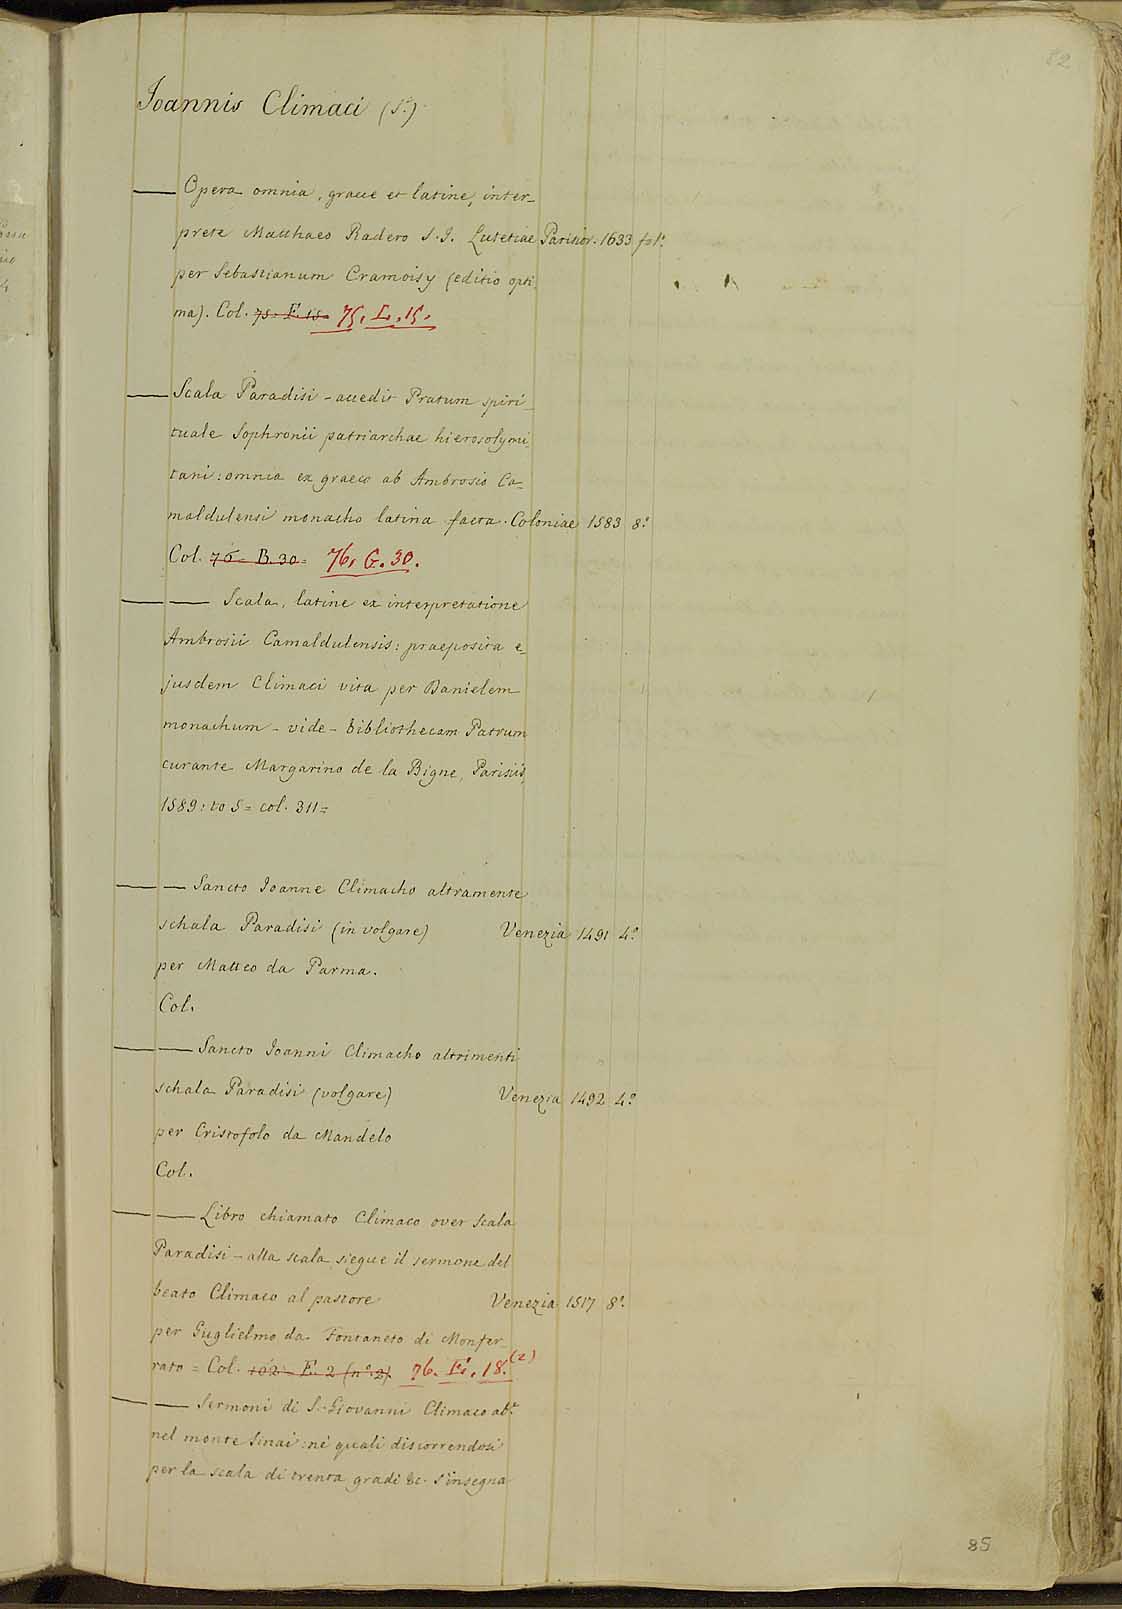 82
Joannis Climaci (S.)
— Opera omnia, graece et latine, inter-
prete Matthaeo Radero S. J. Lutetiae Parisior. 1633 fol.
per Sebastianum Cramoisy (editio opti-
ma). Col. 75. E. 15. 75. L. 15.
— Scala Paradisi - accedit Pratum spiri-
tuale Sophronii patriarchae hierosolymi-
tani: omnia ex graeco ab Ambrosio Ca-
maldulensi monacho latina facta. Coloniae 1583 8.º
Col. 76. B. 30. 76. G. 30.
— — Scala, latine ex interpretatione
Ambrosii Camaldulensis: praeposita e-
jusdem Climaci vita per Danielem
monachum - vide - Bibliothecam Patrum
curante Margarino de la Bigne, Parisiis,
1589: to 5 = col. 311 =
— — Sancto Joanne Climacho altramente
schala Paradisi (in volgare) Venezia 1491 4.º
per Matteo da Parma.
Col.
— — Sancto Joanni Climacho altrimenti
schala Paradisi (volgare) Venezia 1492 4.º
per Cristofolo da Mandelo
Col.
— — Libro chiamato Climaco over Scala
Paradisi - alla scala siegue il sermone del
beato Climaco al pastore Venezia 1517 8.º
per Guglielmo da Fontaneto di Monfer-
rato = Col. 102. E. 2 (nº 2). 76. E. 18. (2)
— — Sermoni di S. Giovanni Climaco ab.e
nel monte Sinai: nè quali discorrendosi
per la scala di trenta gradi &c. s'insegna
85